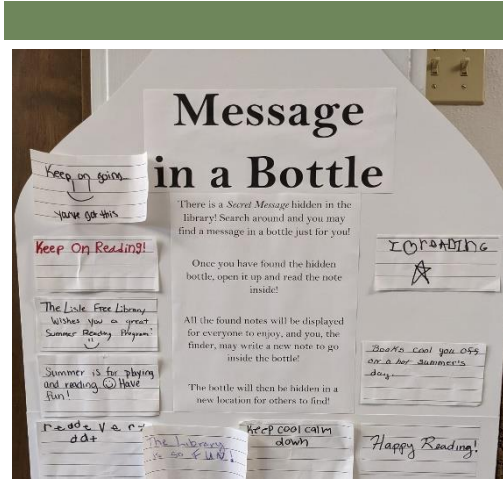 Message
in a Bottle
There is a Secret Message hidden in the
library! Search around and you may
find a message in a bottle just for you!
Once you have found the hidden
bottle, open it up and read the note
inside!
All the found notes will be displayed
for everyone to enjoy, and you, the
finder, may write a new note to go
inside the bottle!
The bottle will then be hidden in a
new location for others to find!
Keep on going
you've got this
Keep On Reading!
The Lisle Free Library
Wishes you a great
Summer Reading Program!
Summer is for playing
and reading. Have
fun!
The Library
is so FUN!
Keep cool calm
down
I READING
Books cool you off
on a hot summer's
day.
Happy Reading!